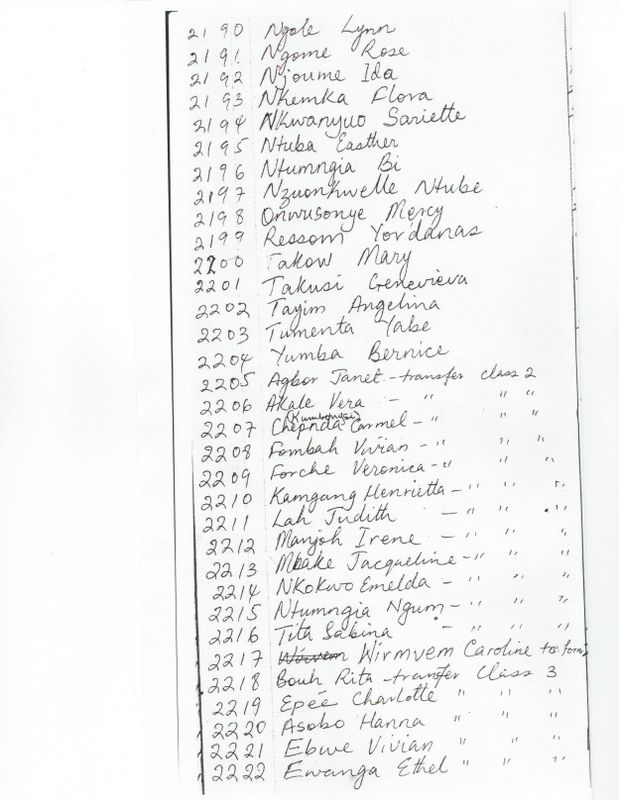 2190 Ngole Lynn
2191 Ngome Rose
2192 Njoume Ida
2193 Nkemka Flora
2194 Nkwanyuo Sariette
2195 Ntuba Easther
2196 Ntumngia Bi
2197 Nzuonkwelle Ntube
2198 Onwusonye Mercy
2199 Ressom Yordanas
2200 Takow Mary
2201 Takusi Genevieva
2202 Tayim Angelina
2203 Tumenta Yabe
2204 Yumba Bernice
2205 Agbor Janet - transfer class 2
2206 Akale Vera - " " "
2207 Chepnda Carmel - " " "
2208 Fombah Vivian - " " "
2209 Forche Veronica - " " "
2210 Kamgang Henrietta - " " "
2211 Lah Judith - " " "
2212 Manjoh Irene - " " "
2213 Mbake Jacqueline - " " "
2214 Nkokwo Emelda - " " "
2215 Ntumngia Ngum - " " "
2216 Tita Sabina - " " "
2217 Wirmvem Caroline to form
2218 Bouh Rita - transfer Class 3
2219 Epée Charlotte " " "
2220 Asobo Hanna " " "
2221 Ebwe Vivian " " "
2222 Ewanga Ethel " " "